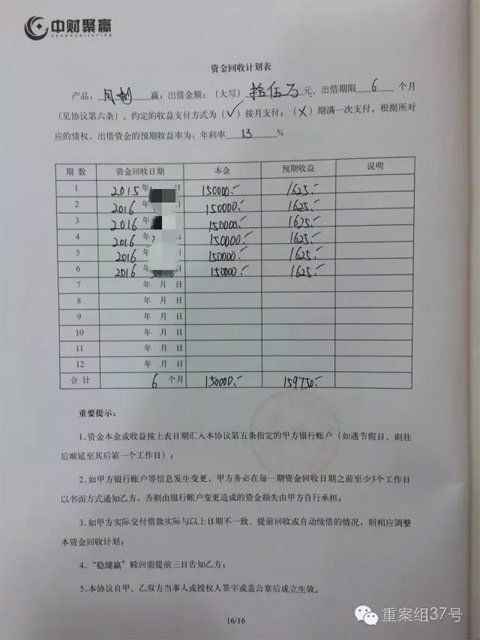 中财聚赢
资金回收计划表
产品:月 赢,出借金额:(大写)拾伍万元,出借期限 6 个月
(见协议第六条),约定的收益支付方式为(✓)按月支付;(×)期满一次支付。根据所对
应的债权,出借资金的预期收益率为:年利率 13 %
期数 资金回收日期 本金 预期收益 说明
1 2015年 日 150000.- 1625.-
2 2016年 日 150000.- 1625.-
3 2016年 日 150000.- 1625.-
4 2016年 日 150000.- 1625.-
5 2016年 日 150000.- 1625.-
6 2016年 日 150000.- 1625.-
7 年 月 日
8 年 月 日
9 年 月 日
10 年 月 日
11 年 月 日
12 年 月 日
合计 6 个月 150000.- 159750.-
重要提示:
1.资金本金或收益按上表日期汇入本协议第五条指定的甲方银行账户(如遇节假日,则往
后顺延至其后第一个工作日);
2.如甲方银行账户等信息发生变更,甲方务必在每一期资金回收日期之前至少3个工作日
以书面方式通知乙方,否则由银行账户变更造成的资金损失由甲方自行承担;
3.如甲方实际交付借款实际与以上日期不一致、提前回收或自动续借的情况,则相应调整
本资金回收计划;
4.“稳健赢”赎回需提前三日告知乙方;
5.本协议自甲、乙双方当事人或授权人签字或盖公章后成立生效。
16/16
重案组37号